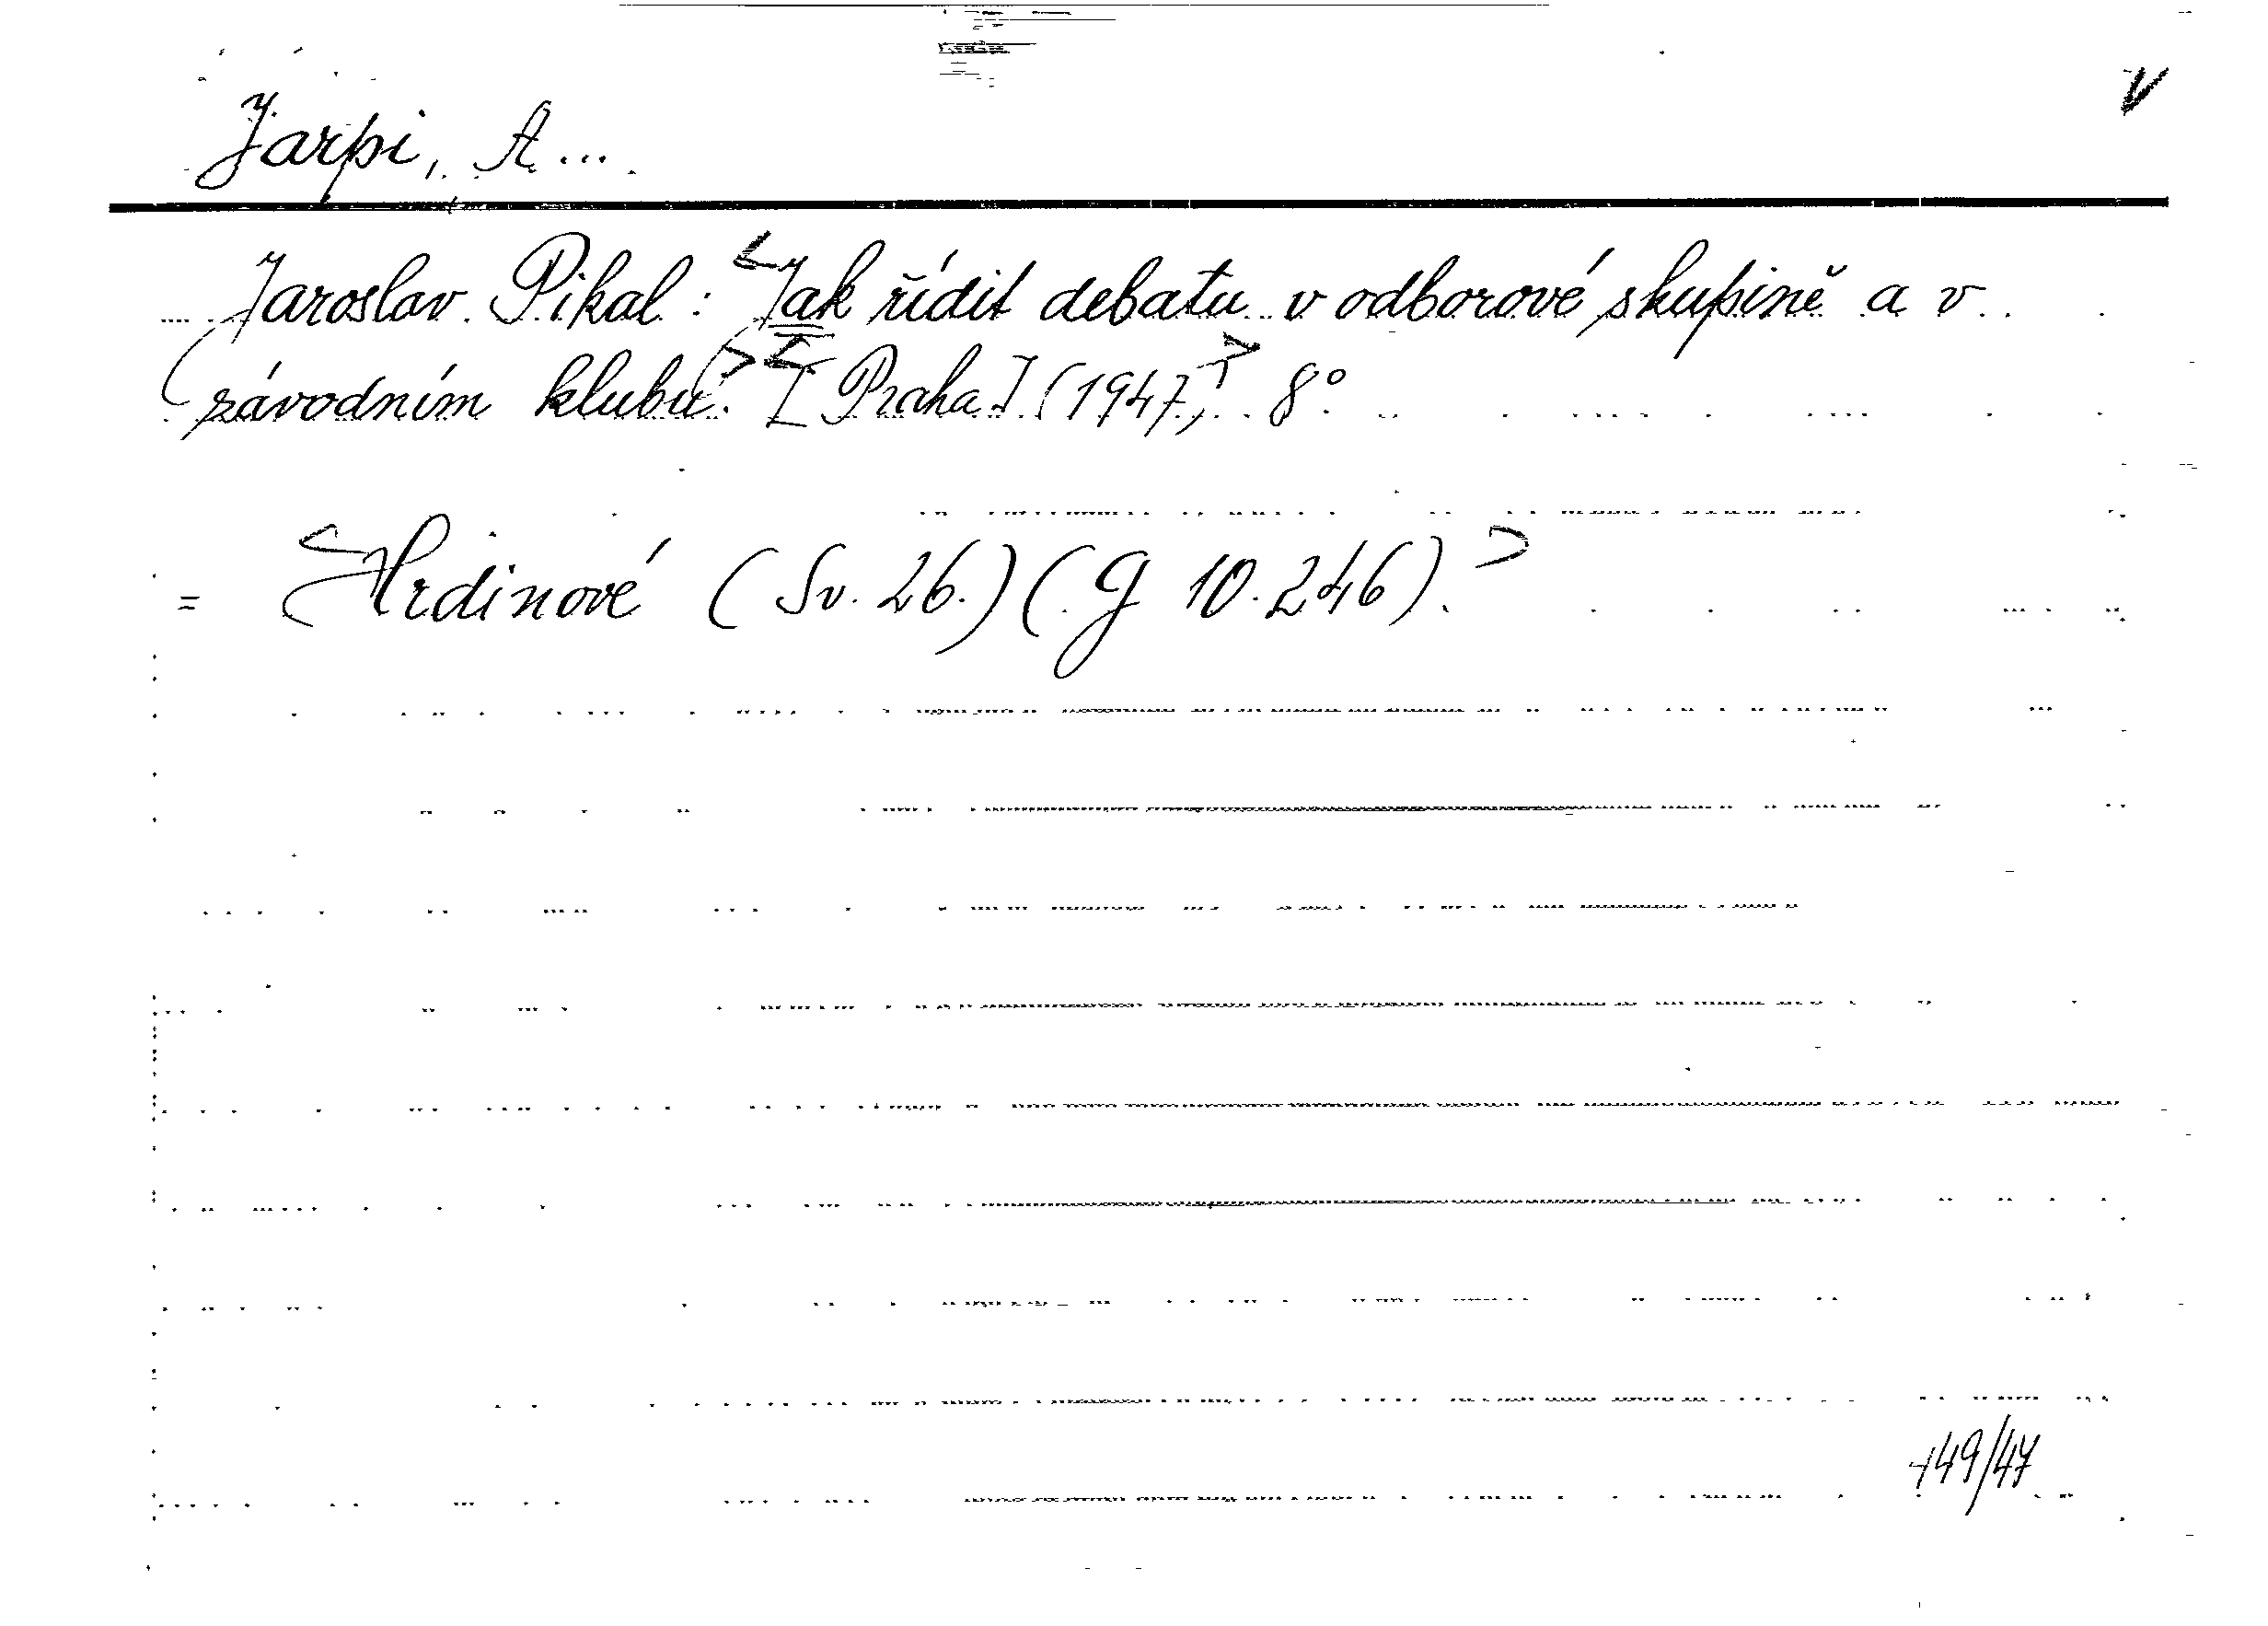 V
Jarpi, A...
Jaroslav Pikal: <Jak řídit debatu v odborové skupině a v
závodním klubu.> <[Praha] (1947,> 8°
= <Hrdinové (Sv. 26.) (G 10.246).>
149/47